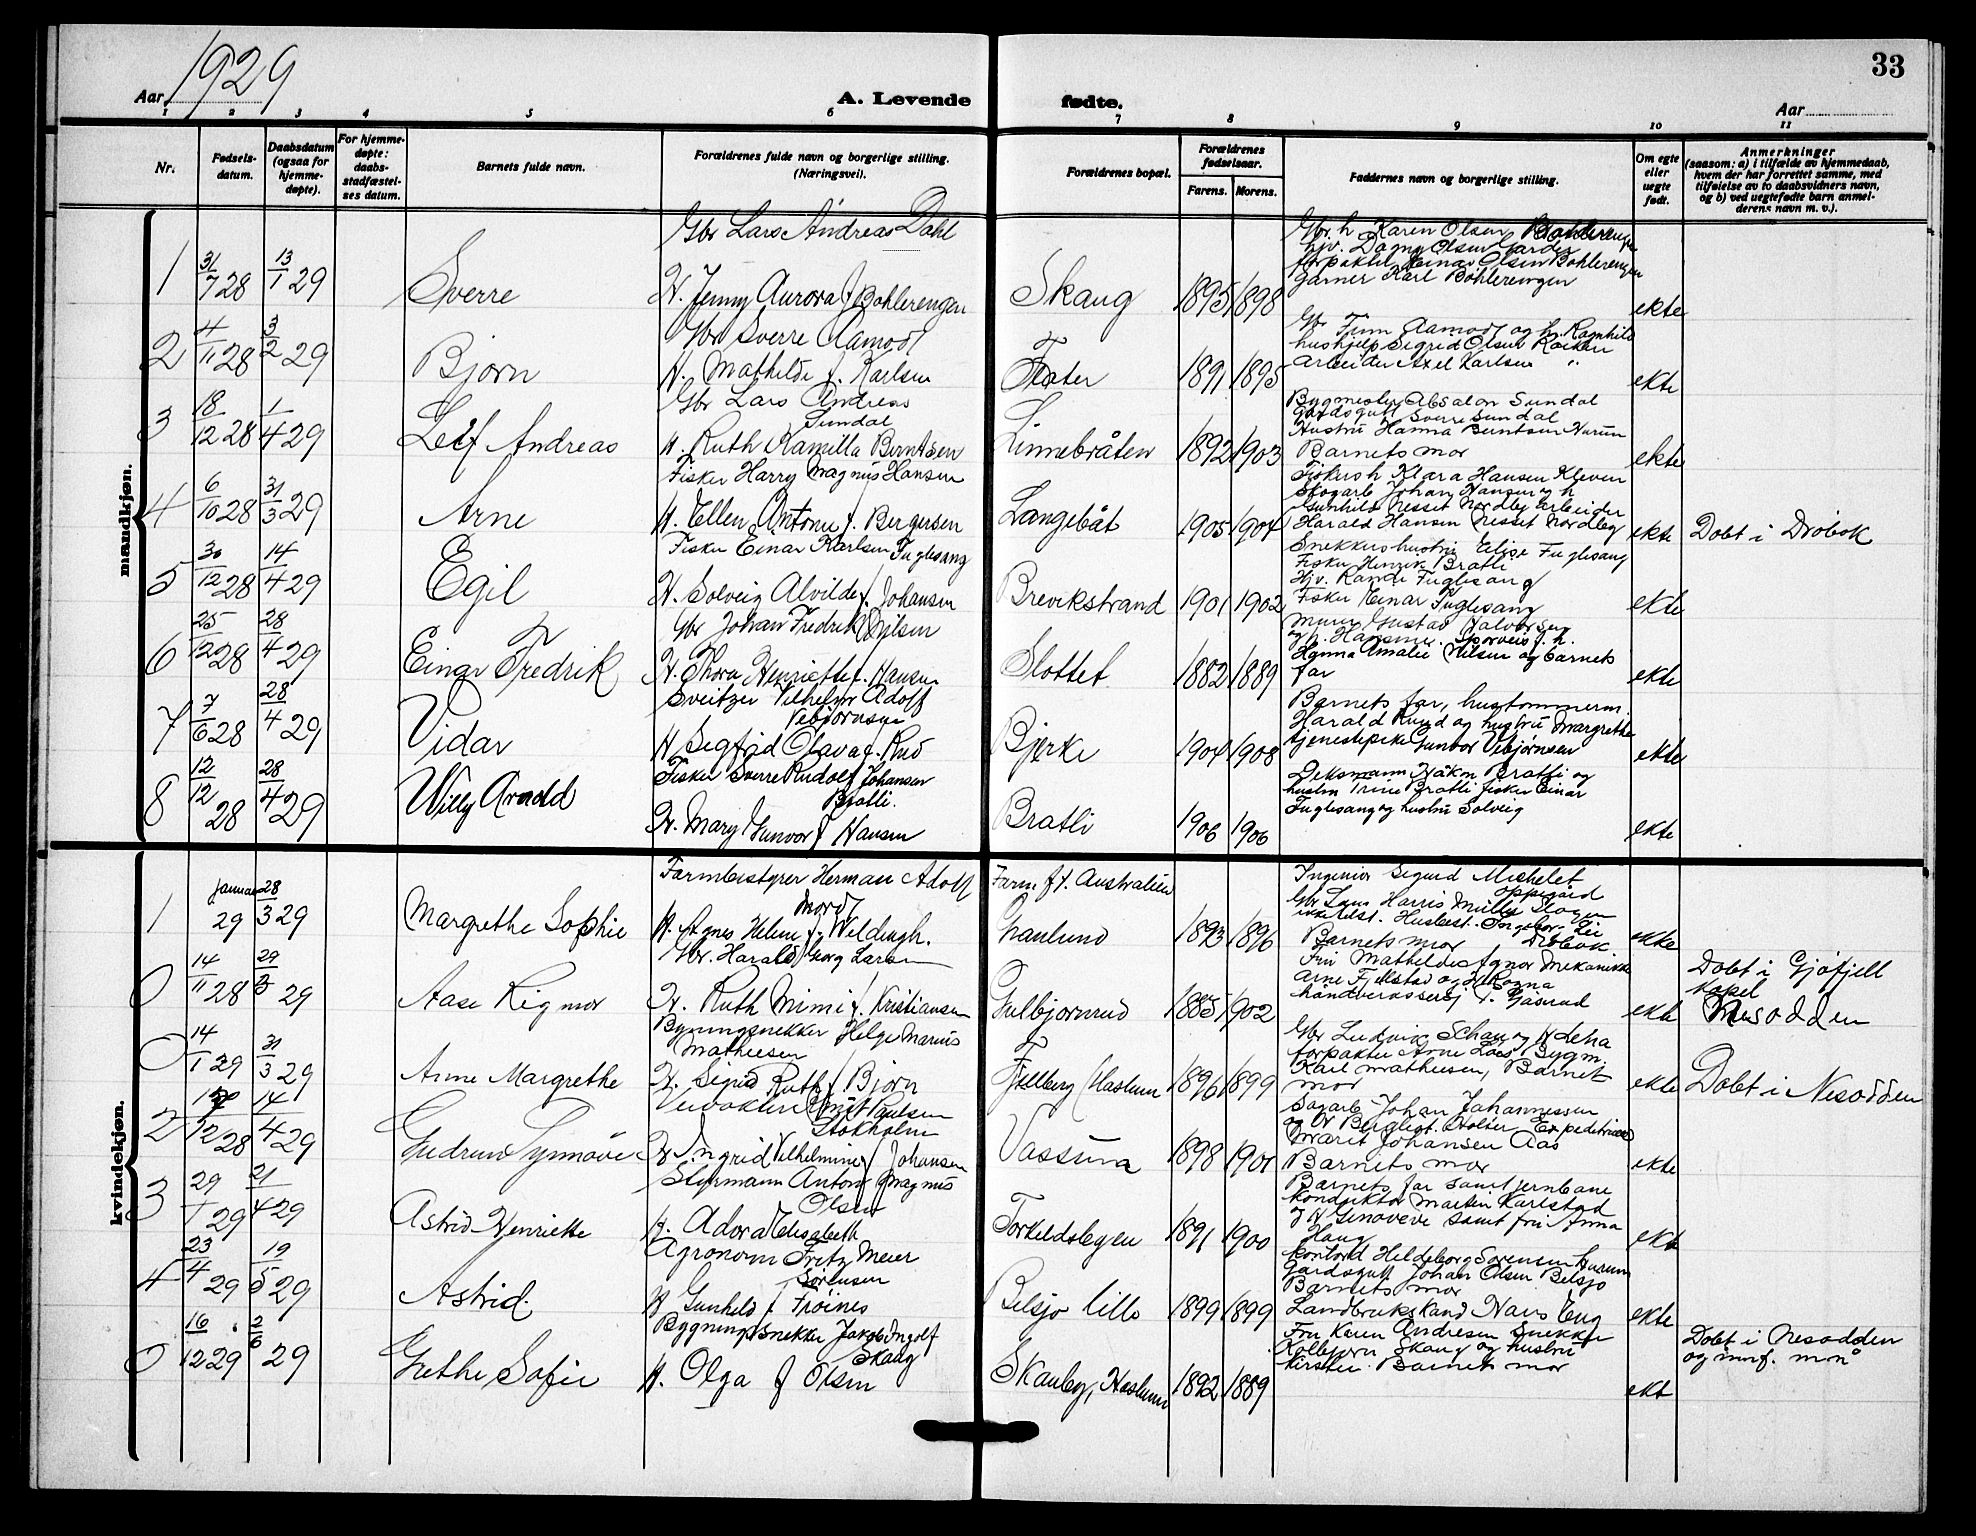 1929
33
Aar
A. Levende
fødte.
Aar
1 2 3 4 5 6 7 8 9 10 11
Nr.
Fødsels-
datum.
Daabsdatum
(ogsaa for
hjemme-
døpte).
For hjemme-
døpte:
daabs-
stadfæstel-
ses datum.
Barnets fulde navn.
Forældrenes fulde navn og borgerlige stilling.
(Næringsvei).
Forældrenes bopæl.
Forældrenes
fødselsaar.
Farens. Morens.
Faddernes navn og borgerlige stilling.
Om egte
eller
uegte
født.
Anmerkninger
(saasom: a) i tilfælde av hjemmedaab,
hvem der har forrettet samme, med
tilføielse av to daabsvidners navn,
og b) ved uegtefødte barn anmel-
derens navn m. v.).
mandkjøn.
1 31/7 28 13/1 29 Sverre
Gbr Lars Andreas Dahl
H. Jenny Aurora f. Bohlerengen
Skaug 1895 1898
Gbr. h Karen Olsen Bohlerengen
forpakter Einar Olsen Bohlerengen
Garner Karl Bohlerengen
ekte
2 4/11 28 3/2 29 Bjørn
Gbr Sverre Aamodt
H. Mathilde f. Karlsen
1891 1895
Gbr Finn Aamodt og h. Ragnhild
hushjelp Sigrid Olsen Røiken
Arbeider Axel Karlsen "
ekte
3 18/12 28 1/4 29 Leif Andreas
Gbr Lars Andreas
Sundal
H. Ruth Kamilla Berntsen
Linnebråten 1892 1903
Bygmester Absalon Sundal
Gårdsgutt Sverre Sundal
Hustru Hanna Berntsen Hurum
Barnets mor
ekte
4 6/10 28 31/3 29 Arne
Fisker Harry Magnus Hansen
H. Ellen Antonie f. Bergersen
Langebåt 1905 1904
Fiskers h Klara Hansen Kleven
Skogarb Johan Hansen og h
Gunhild Nesset Nordby arbeider
Harald Hansen Nesset Nordby
ekte Døbt i Drøbak
5 30/12 28 14/4 29 Egil
Fisker Einar Karlsen Fuglesang
H. Solveig Alvilde f. Johansen
Brevikstrand 1901 1902
Snekkers hustru Elise Fuglesang
Fisker Henrik Bratli
Hjv. Randi Fuglesang
Fisker Einar Fuglesang
ekte
6 25/12 28 28/4 29 Einar Fredrik
Gbr Johan Fredrik Nilsen
H. Thora Henriette f. Hansen
Slottet 1882 1889
Murer Gustav Halvorsen
og h. Hansine. Sporveis f. h.
Hanna Amalie Nilsen og barnets
far
ekte
7 7/6 28 28/4 29 Vidar
Sveitzer Vilhelm Adolf
Vebjørnsen
H Sigfrid Olava f. Rud
Bjerke 1904 1908
Barnets far, hustømmerm.
Harald Ruud og hustru Margrethe
tjenestepike Gunvor Vebjørnsen
ekte
8 12/12 28 28/4 29 Willy Arnold
Fisker Sverre Rudolf Johansen
Bratli.
H. Mary Gunvor f Hansen
Bratli 1906 1906
Deksmann Håkon Bratli og
hustru Trine Bratli fisker Einar
Fuglesang og hustru Solveig
ekte
kvindekjøn.
1 januar 29 28/3 29 Margrethe Sophie
Farmbestyrer Herman Adolf
H. Agnes Helene f. Weldingh.
Farm f.t. Australien
1893 1896
Ingeniør Sigurd Michelet
Oppegård
Barnets mor Drøbak
ekte
0 14/11 28 29/3 29 Aase Rigmor
Gbr. Harald Georg Larsen
H. Ruth Mimi f. Kristiansen
Gulbjørnrud 1885 1902
Arne Fjellstad og H Ragna
ekte
Døbt i Gjøfjell
kapel
Nesodden
0 14/1 29 31/3 29 Anne Margrethe
Bygningsnekker Helge Marius
Mathiesen
H. Sigrid Ruth f Bjørn
Fjellberg Haslum 1896 1899
forpakter Arne Løes Bygm.
Karl Mathiesen, Barnets
mor
ekte Døbt i Nesodden
2 12 28 14/4 29 Gudrun Synnøve
Stokholm
H. Ingrid Vilhelmine f Johansen
Vassum 1898 1901
Sagarb Johan Johannessen
Marit Johansen Aas
Barnets mor
ekte
3 29/1 29 21/4 29 Astrid Henriette
Styrmann Anton Magnus
Olsen
H. Adora Elisabeth
Torkeldsbyen 1891 1900
Barnets far samt jernbane
konduktør Martin Karlstad
og H Genoveve samt frü Anna
Haug
ekte
4 23/4 29 19/5 29 Astrid.
Agronom Fritz Meier
Sörensen
H Gunhild f Fröines
Belsjø lille 1899 1899
Kontorist Heldeborg Sörensen Hurum
Gårdsgutt Johan Olsen Belsjø
Barnets mor
Landbrukskand Hans Eng
ekte
0 16/12 29 2/6 29 Grethe Sofie
Bygningssnekker Jakob Ingolf
Skaug
H. Olga f Olsen
Skauby, Haslum 1892 1889
Fru Karen Andresen Snekker
Kolbjørn Skaug og hustru
Kirsten. Barnets mor
ekt
Døbt i Nesodden